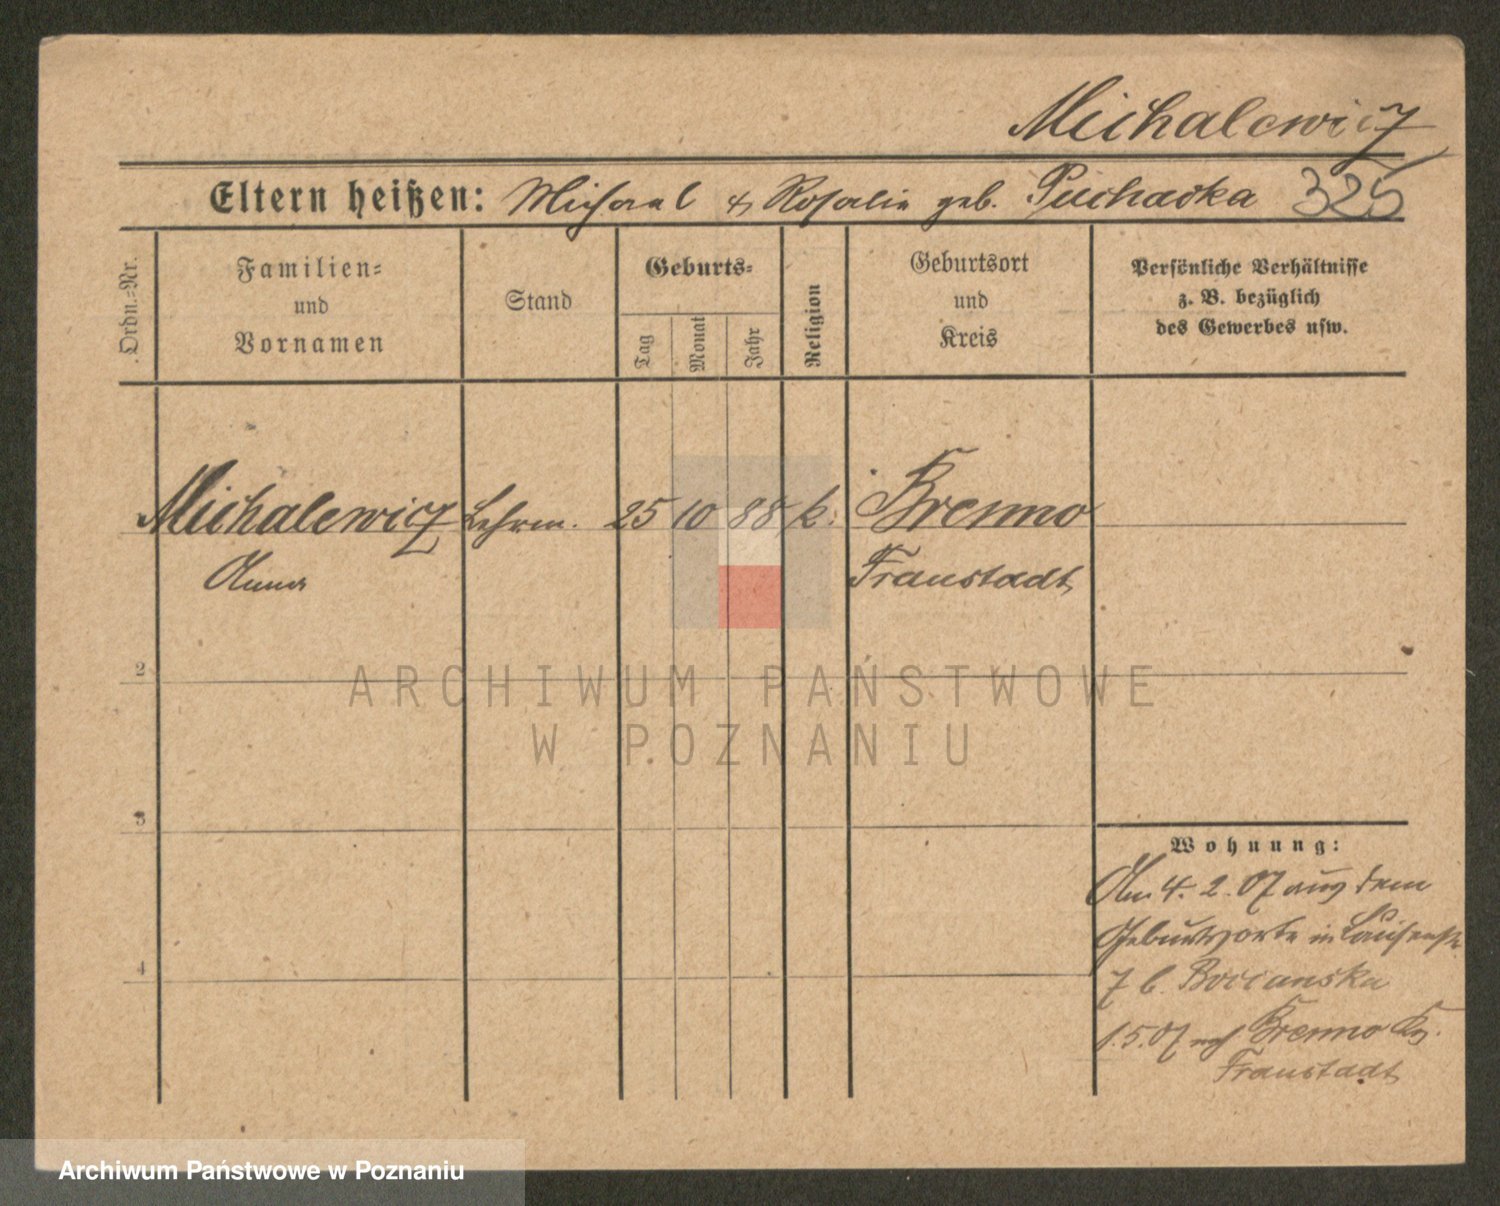 Michalewicz
Eltern heißen: Michael & Rosalie geb. Puchacka 325
Ordn.-Nr.
Familien- und Vornamen
Stand
Geburts-
Tag
Monat
Jahr
Religion
Geburtsort und Kreis
Persönliche Verhältnisse
z. B. bezüglich
des Gewerbes usw.
Michalewicz Lehrm. 25 10 88 k. Brenno
Anna Fraustadt
2
3
4
ARCHIWUM PAŃSTWOWE
W POZNANIU
Wohnung:
Am 4. 2. 07 aus dem
Geburtsorte in Luisenstr
7 b. Bocianska
1.5.07 nach Brenno Krs.
Fraustadt
Archiwum Państwowe w Poznaniu